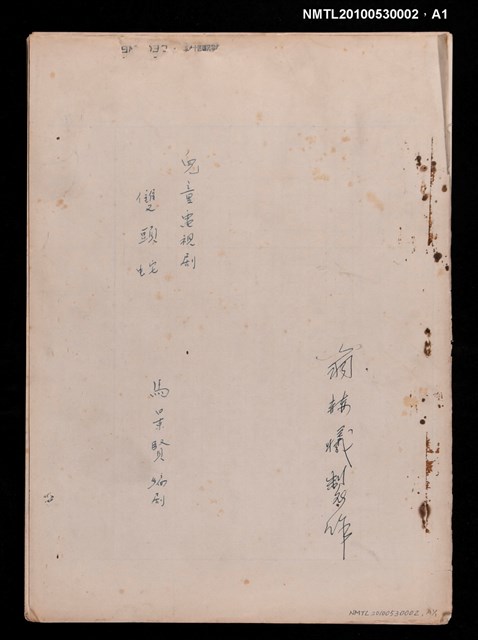 NMTL20100530002 · A1
兒童電視剧
雙頭蛇
馬景賢編剧
製作
NMTL20100530002